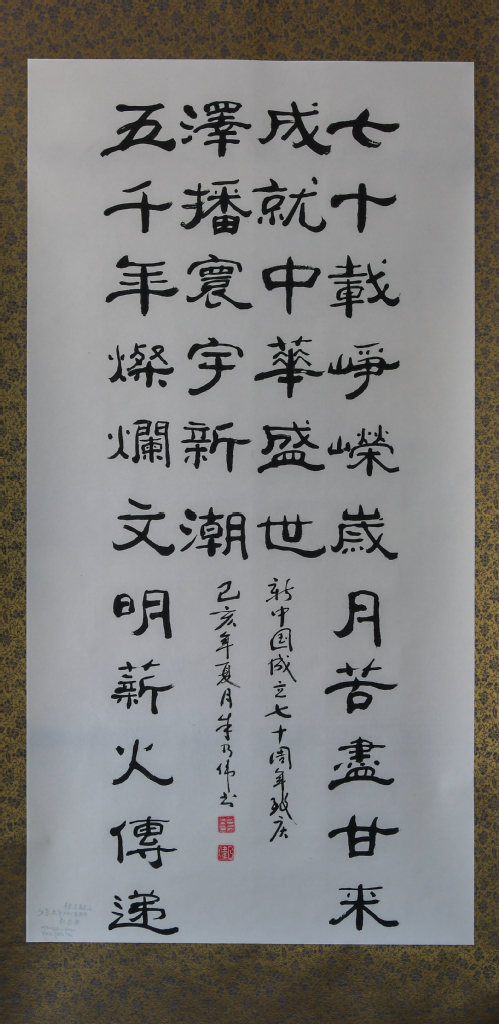 七十載崢嶸歲月苦盡甘来
成就中華盛世
新中国成立七十周年致庆
五千年燦爛文明薪火傳递
澤播寰宇新潮
己亥年夏月乃伟书